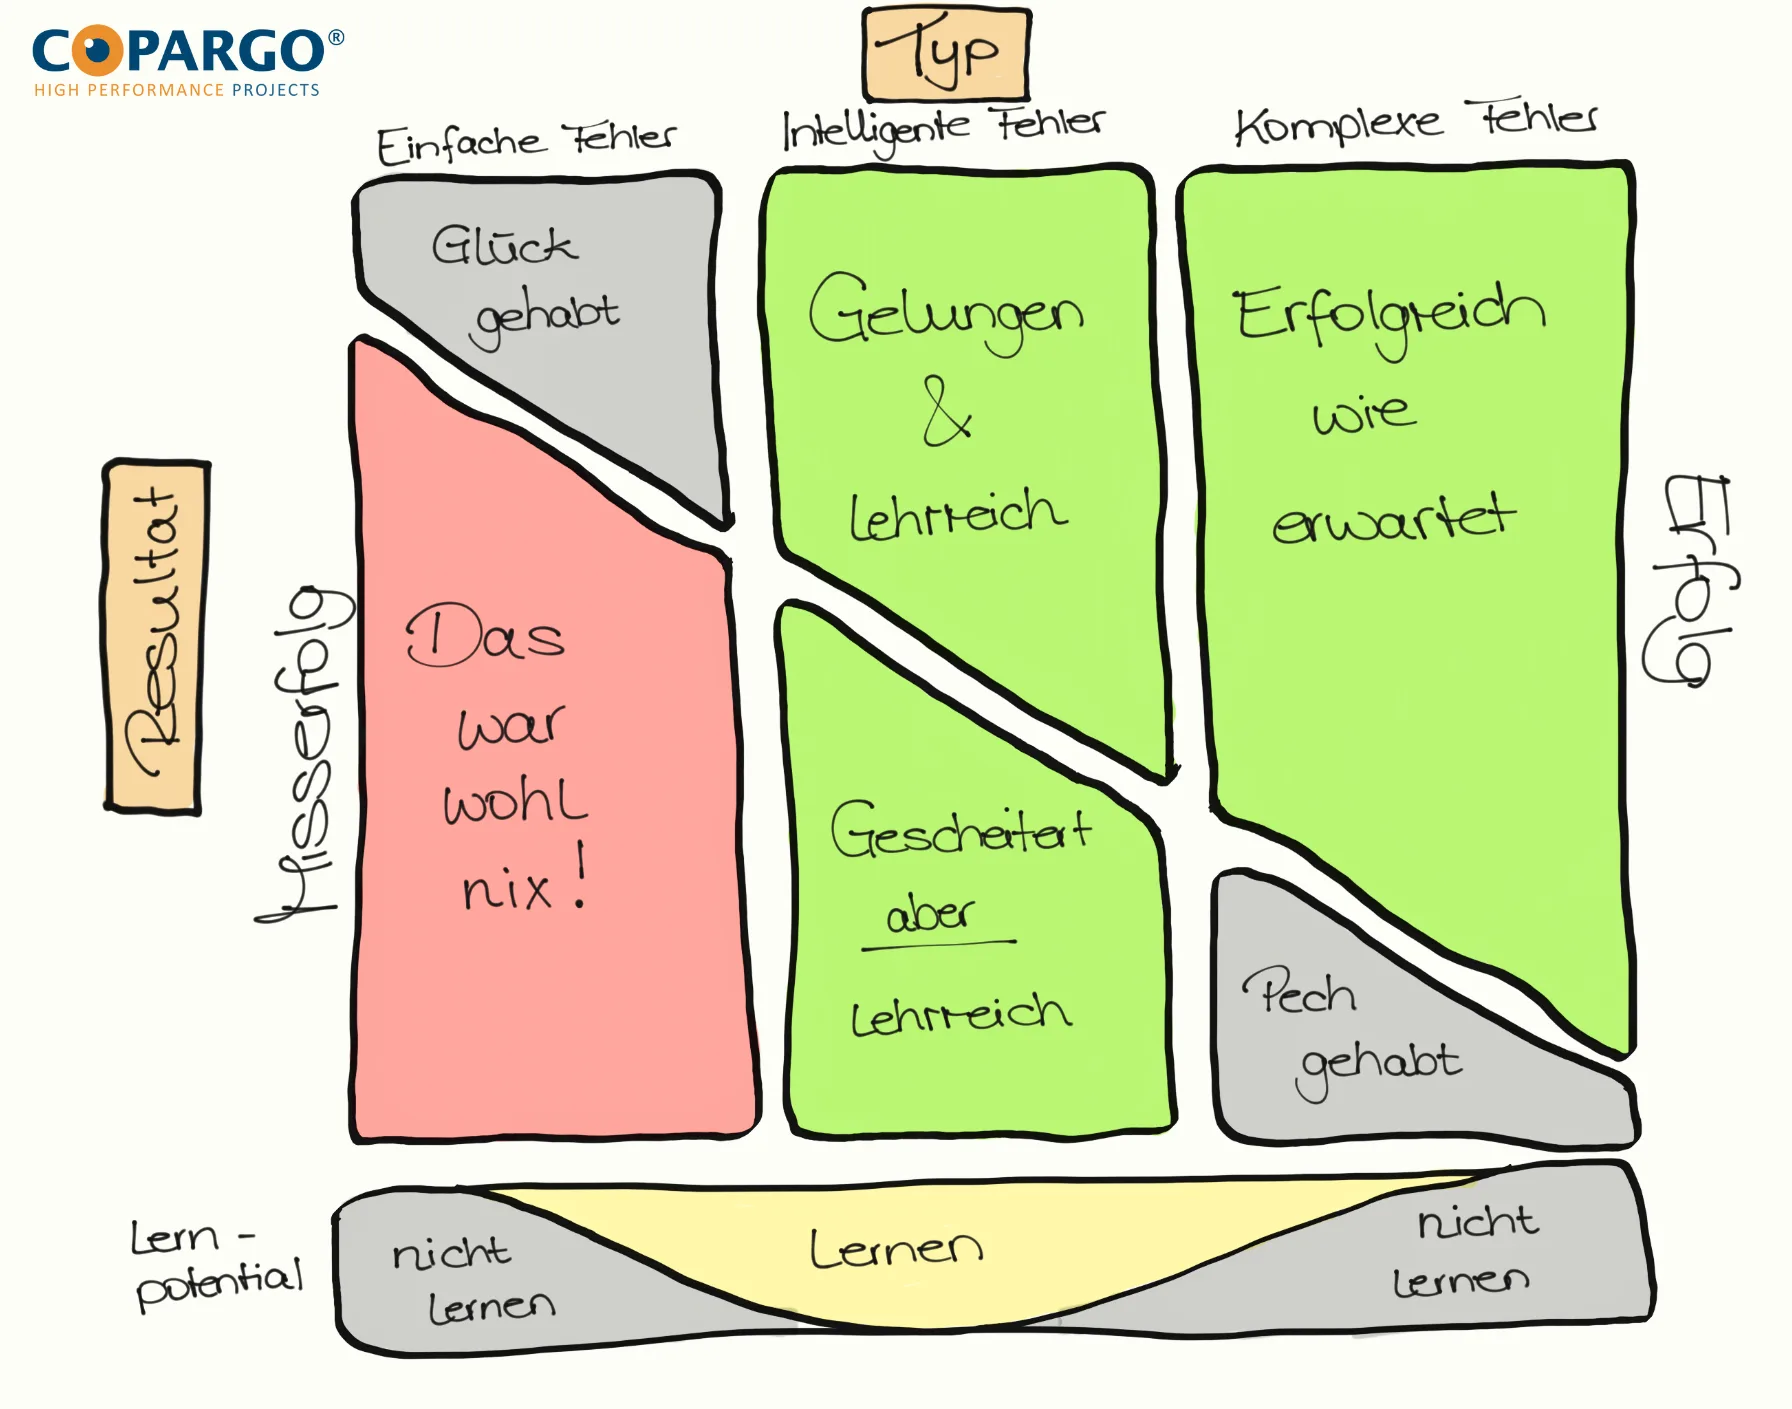 COPARGO®
HIGH PERFORMANCE PROJECTS
Typ
Einfache Fehler
Intelligente Fehler
Komplexe Fehler
Glück
gehabt
Gelungen
&
Lehrreich
Erfolgreich
wie
erwartet
Resultat
Misserfolg
Erfolg
Das
war
wohl
nix!
Gescheitert
aber
Lehrreich
Pech
gehabt
Lern-
potential
nicht
lernen
Lernen
nicht
lernen